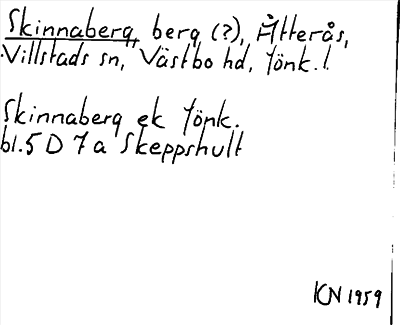 Skinnaberg, berg (?), Åtterås,
Villstads sn, Västbo hd, Jönk. l.
Skinnaberg ek Jönk.
bl. 5 D 7 a Skeppshult
KN 1959